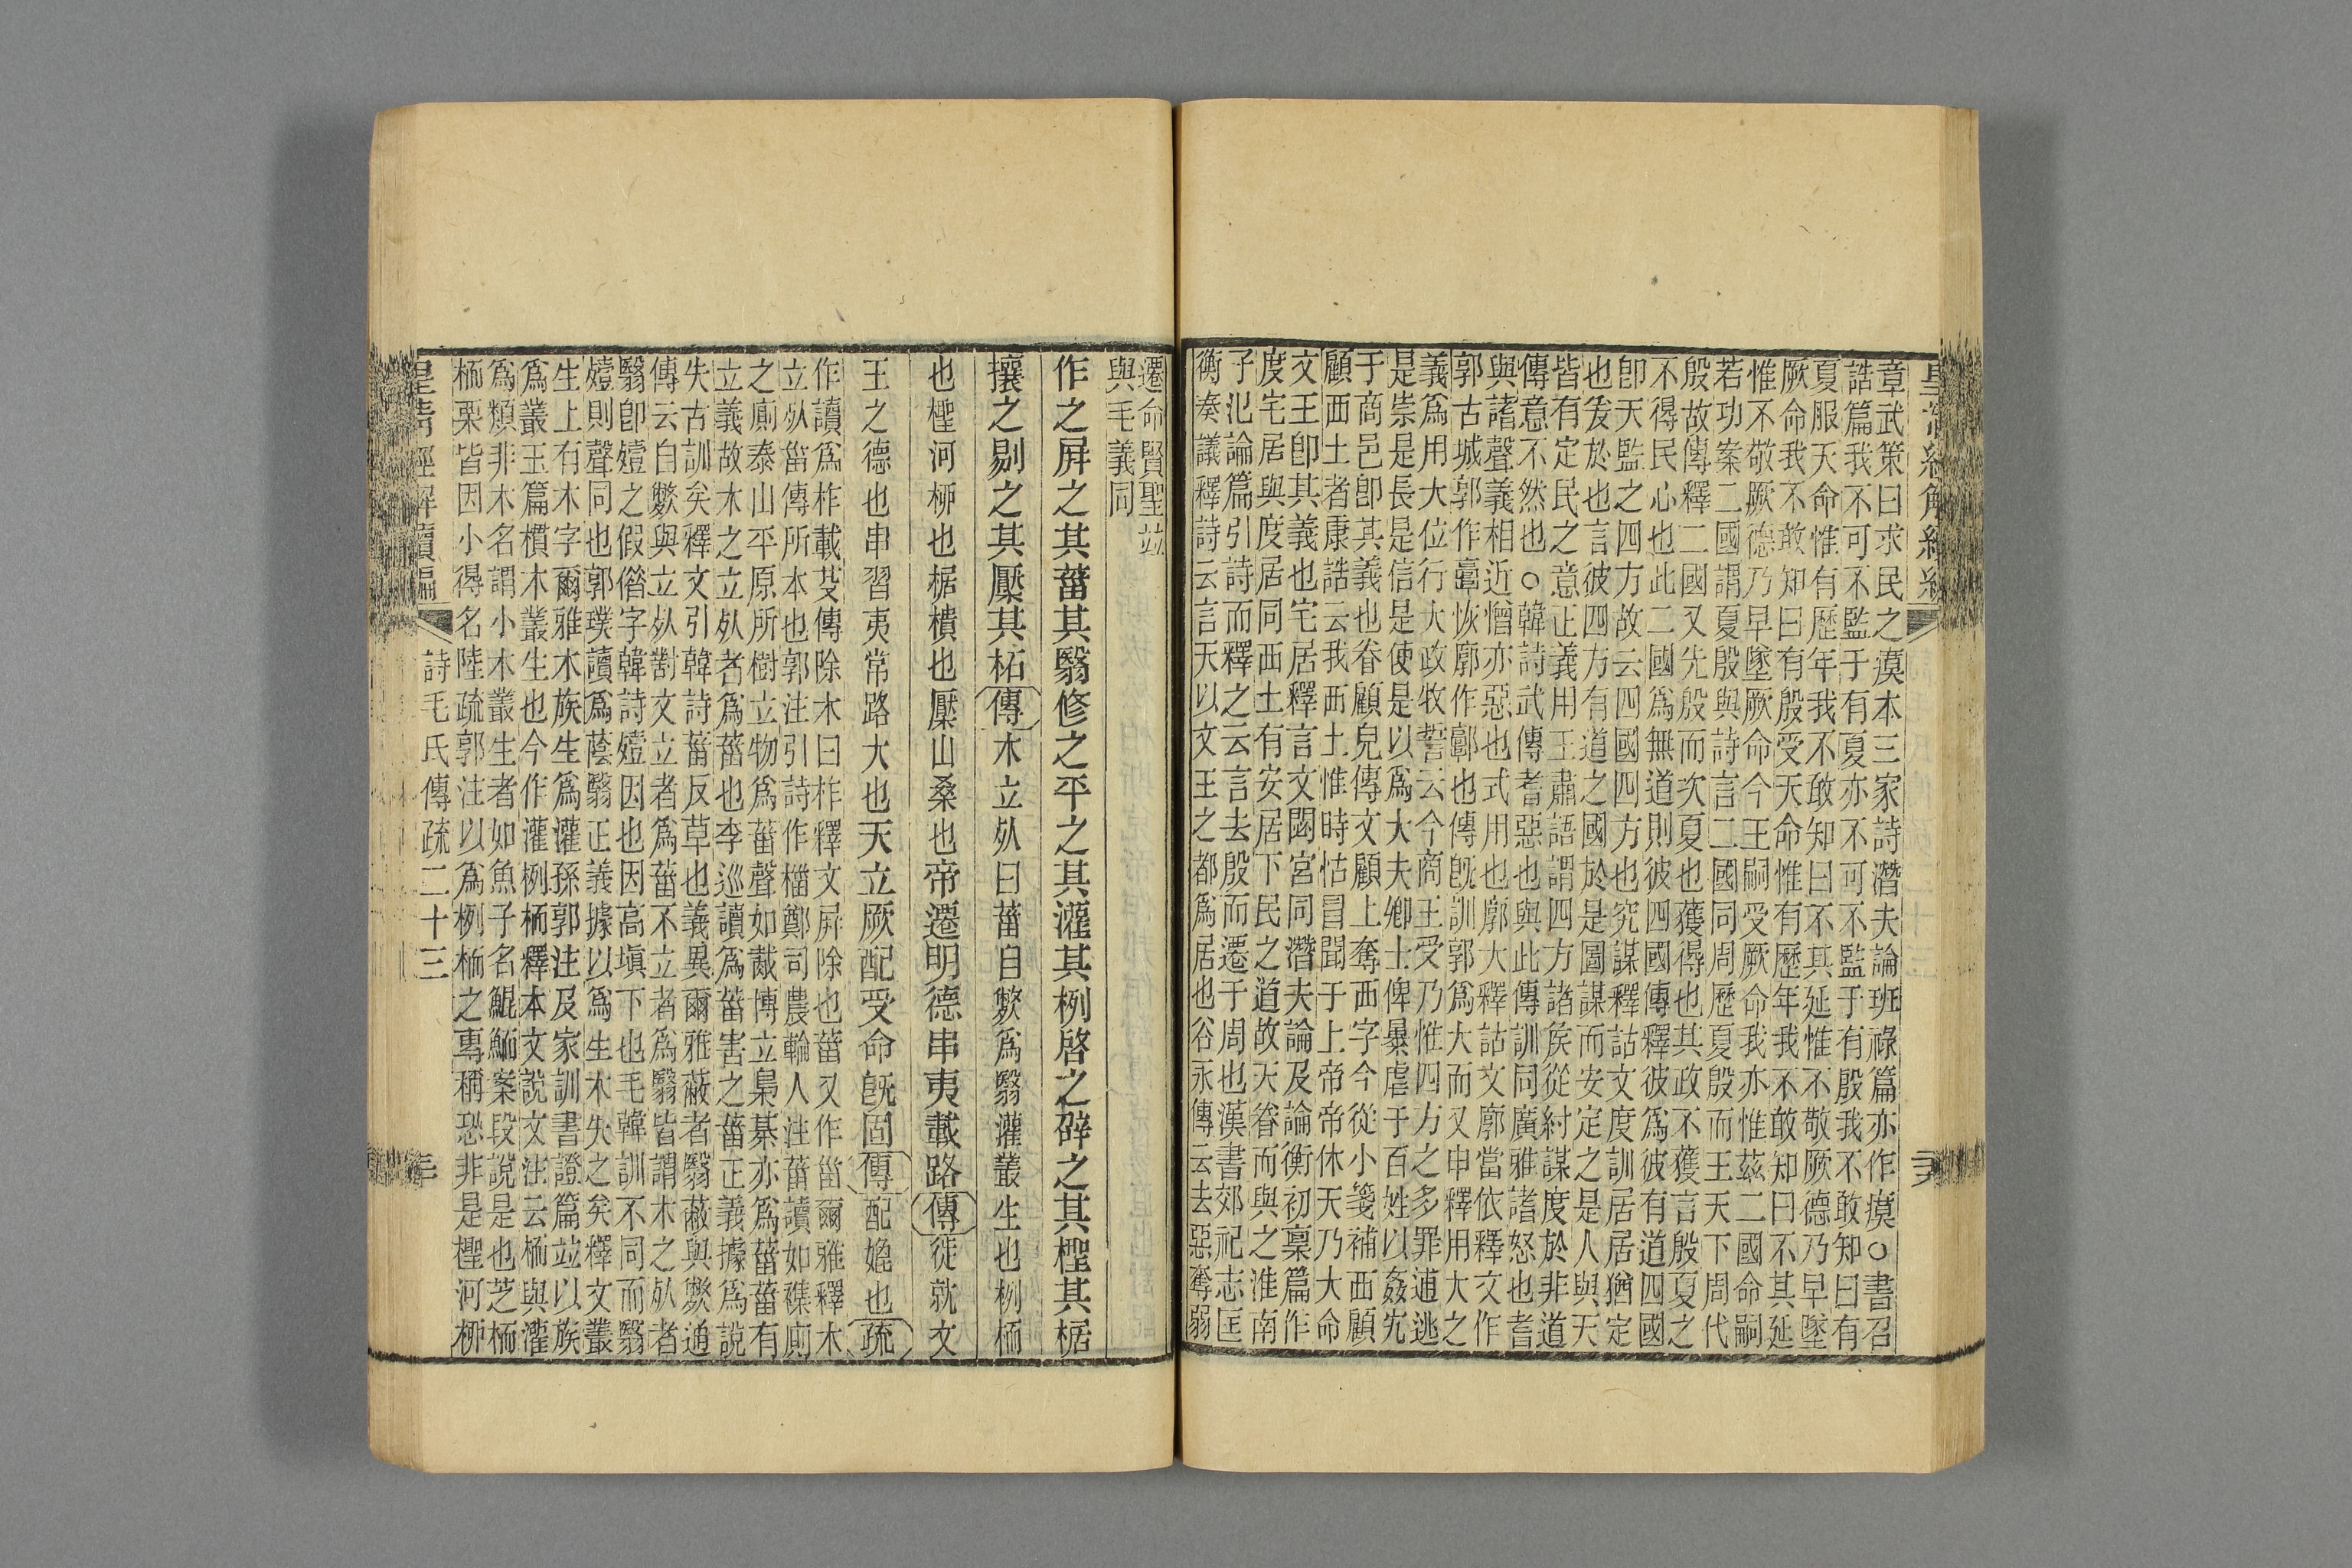 章武策曰求民之瘼本三家詩潛夫論班祿篇亦作瘼○書召
誥篇我不可不監于有夏亦不可不監于有殷我不敢知曰有
夏服天命惟有歷年我不敢知曰不其延惟不敬厥德乃早墜
厥命我不敢知曰有殷受天命惟有歷年我不敢知曰不其延
惟不敬厥德乃早墜厥命今王嗣受厥命我亦惟茲二國命嗣
若功案二國謂夏殷與詩言二國同周歷夏殷而王天下周代
殷故傳釋二國又先殷而次夏也獲得也其政不獲言殷夏之
不得民心也此二國爲無道則彼四國傳釋彼爲彼有道四國
卽天監之四方故云四國四方也究謀釋詁文度訓居居猶定
也爰於也言彼四方有道之國於是圖謀而安定之是人與天
皆有定民之意正義用王肅語謂四方諸矦從紂謀度於非道
傳意不然也○韓詩武傳耆惡也與此傳訓同廣雅諸怒也耆
與諸聲義相近憎亦惡也式用也廓大釋詁文廓當依釋文作
郭古城郭作𩫏恢廓作鄽也傳旣訓郭爲大而又申釋用大之
義爲用大位行大政牧誓云今商王受乃惟四方之多罪逋逃
是崇是長是信是使是以爲大夫卿士俾暴虐于百姓以姦宄
于商邑卽其義也眷顧皃傳文顧上奪西字今從小箋補西顧
顧西土者康誥云我西土惟時怙冒聞于上帝帝休天乃大命
文王卽其義也宅居釋言文閟宮同潛夫論及論衡初稟篇作
度宅居與度居同西土有安居下民之道故天眷而與之淮南
子氾論篇引詩而釋之云言去殷而遷于周也漢書郊祀志匡
衡奏議釋詩云言天以文王之都爲居也谷永傳云去惡奪弱
遷命賢聖竝
與毛義同
作之屏之其菑其翳修之平之其灌其栵啓之辟之其檉其椐
攘之剔之其檿其柘傳木立死曰菑自斃爲翳灌叢生也栵栭
也檉河柳也椐樻也檿山桑也帝遷明德串夷載路傳徙就文
王之德也串習夷常路大也天立厥配受命旣固傳配媲也疏
作讀爲柞載芟傳除木曰柞釋文屏除也菑又作甾爾雅釋木
立死甾傳所本也郭注引詩作椔鄭司農輪人注菑讀如磔廁
之廁泰山平原所樹立物爲菑聲如胾博立梟棊亦爲菑菑有
立義故木之立死者爲菑也李巡讀爲菑害之菑正義據爲說
失古訓矣釋文引韓詩菑反草也義異爾雅蔽者翳蔽與斃通
傳云自斃與立死對文立者爲菑不立者爲翳皆謂木之死者
翳卽殪之假僭字韓詩殪因也因高塡下也毛韓訓不同而翳
殪則聲同也郭璞讀爲蔭翳正義據以爲生木失之矣釋文叢
生上有木字爾雅木族生爲灌孫郭注及家訓書證篇竝以族
爲叢玉篇樌木叢生也今作灌栵栭釋木文說文注云栭與灌
爲類非木名謂小木叢生者如魚子名鯤鮞案段說是也芝栭
栭栗皆因小得名陸疏郭注以爲栵栭之專稱恐非是檉河柳
詩毛氏傳疏二十三